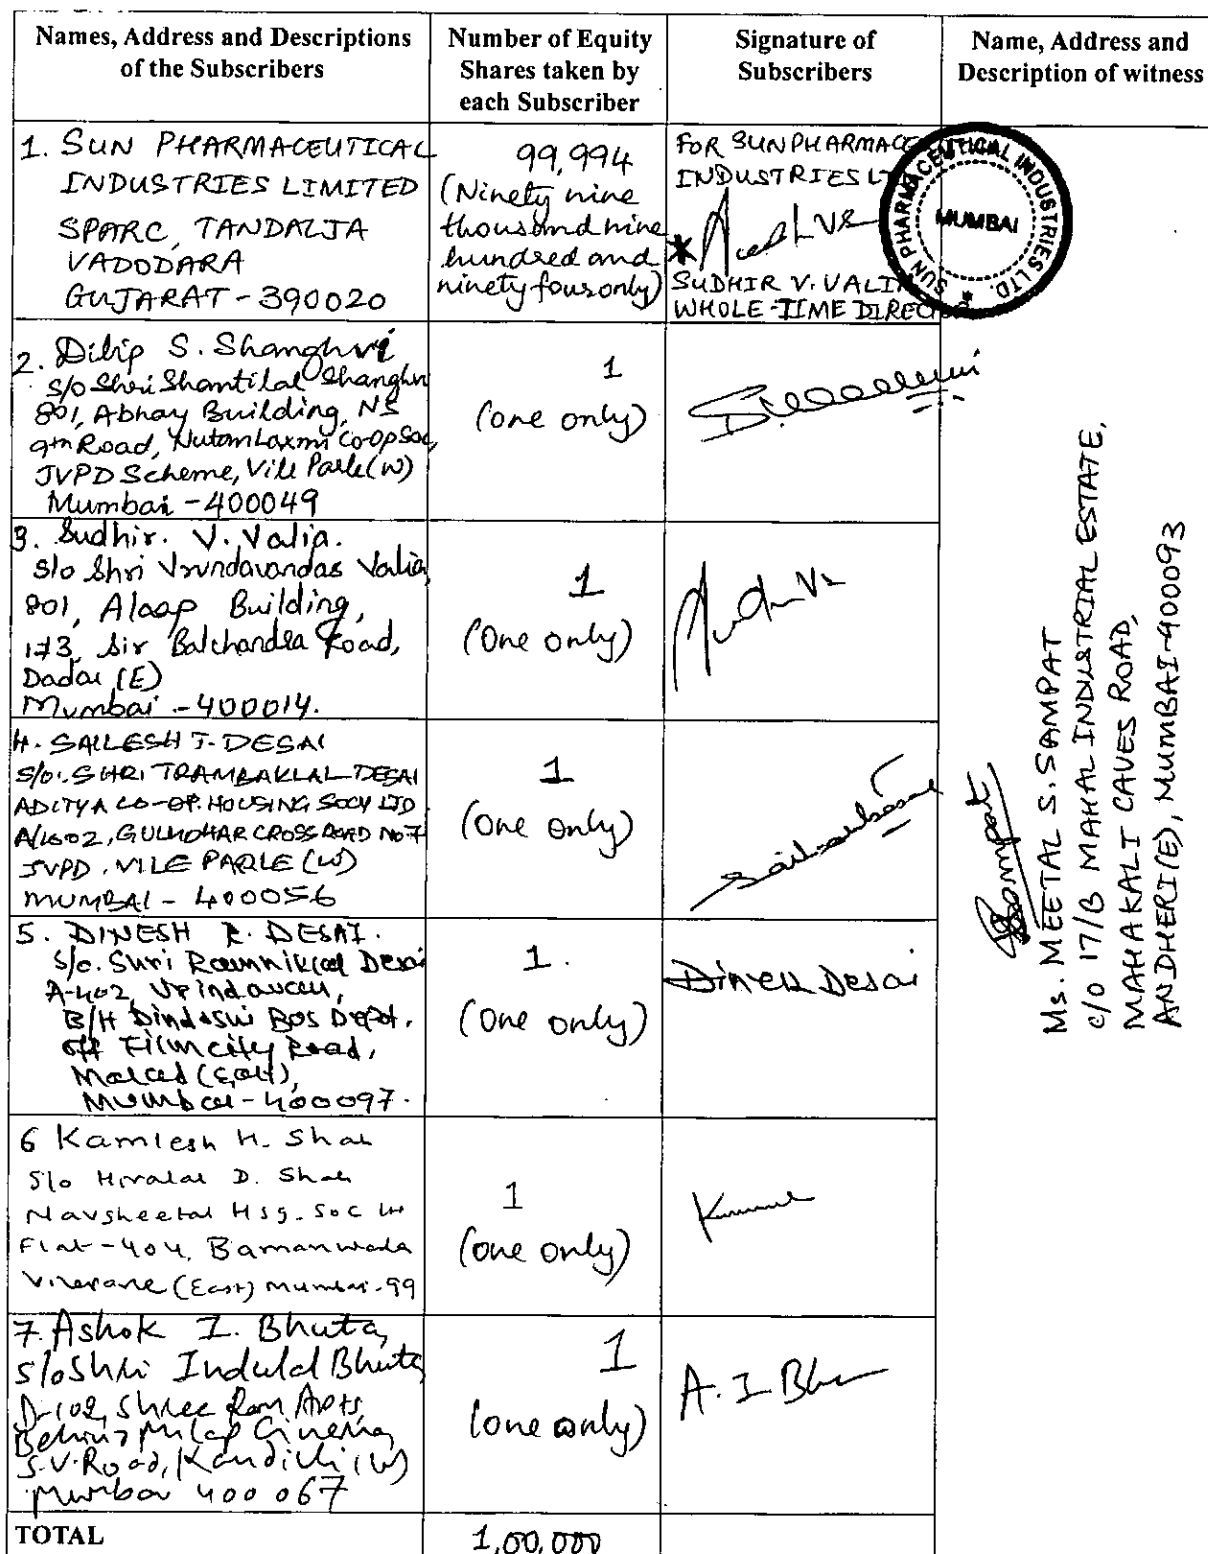 Names, Address and Descriptions
of the Subscribers
Number of Equity
Shares taken by
each Subscriber
Signature of
Subscribers
Name, Address and
Description of witness
1. SUN PHARMACEUTICAL
INDUSTRIES LIMITED
SPARC, TANDALJA
VADODARA
GUJARAT - 390020
99,994
(Ninety nine
thousand nine
hundred and
ninety four only)
FOR SUN PHARMACE
INDUSTRIES
SUDHIR V. VALIA
WHOLE-TIME DIRECTOR
SUN PHARMACEUTICAL INDUSTRIES LTD.
MUMBAI
2. Dilip S. Shanghvi
S/o Shri Shantilal Shanghvi
801, Abhay Building, NS
9th Road, Nutan Laxmi Co-op Soc,
JVPD Scheme, Vile Parle (W)
Mumbai - 400049
1
(one only)
3. Sudhir. V. Valia.
S/o Shri Vrundavandas Valia,
801, Alaap Building,
173, Sir Balchandra Road,
Dadar (E)
Mumbai - 400014.
1
(One only)
4. SAILESH T. DESAI
S/o. SHRI TRAMBAKLAL DESAI
ADITYA CO-OP. HOUSING SOCY LTD
A/1602, GULMOHAR CROSS ROAD NO 7
JVPD. VILE PARLE (W)
MUMBAI - 400056
1
(One only)
5. DINESH R. DESAI.
S/o. Shri Ramniklal Desai
A-402, Vrindavan,
B/H Dindoshi Bus Depot,
off Filmcity Road,
Malad (East),
Mumbai - 400097.
1.
(One only)
Dinesh Desai
6 Kamlesh H. Shah
S/o Hiralal D. Shah
Navsheetal Hsg. Soc
Flat - 404, Bamanwada
Vileparle (East) Mumbai - 99
1
(one only)
7. Ashok I. Bhuta,
S/o Shri Indulal Bhuta
D-102, Shree Ram Apts,
Behind Milap Cinema,
S.V. Road, Kandivli (W)
Mumbai 400 067
1
(one only)
A. I. Bhuta
TOTAL
1,00,000
Sampat
Ms. MEETAL S. SAMPAT
c/o 17/B MAHAL INDUSTRIAL ESTATE,
MAHAKALI CAVES ROAD,
ANDHERI (E), MUMBAI-400093